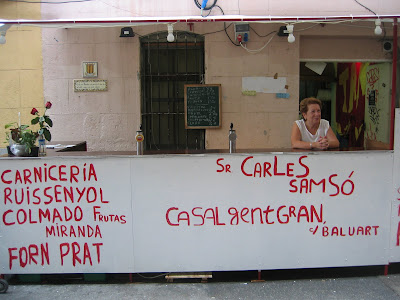 CARNICERÍA
RUISSENYOL
COLMADO FRUTAS
MIRANDA
FORN PRAT
SR CARLES
SAMSÓ
CASAL gENT GRAN,
c/ BALUART